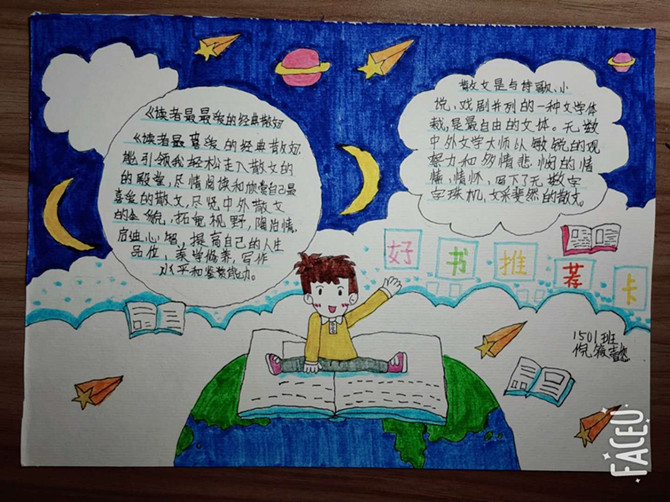 《读者最最爱的经典散文》
《读者最喜爱的经典散文》
能引领我轻松走入散文的
的殿堂,尽情阅读和欣赏自己最
喜爱的散文,尽览中外散文
的全貌,拓宽视野,陶冶情,
启迪心智,提高自己的人生
品位,美学修养,写作
水平和鉴赏能力。
散文是与诗歌、小
说、戏剧并列的一种文学体
裁,是最自由的文体。无数
中外文学大师以敏锐的观
察力和的情
怀,留下了无数字
字珠机,文采斐然的散文。
好书推荐卡
1501班
FACEU